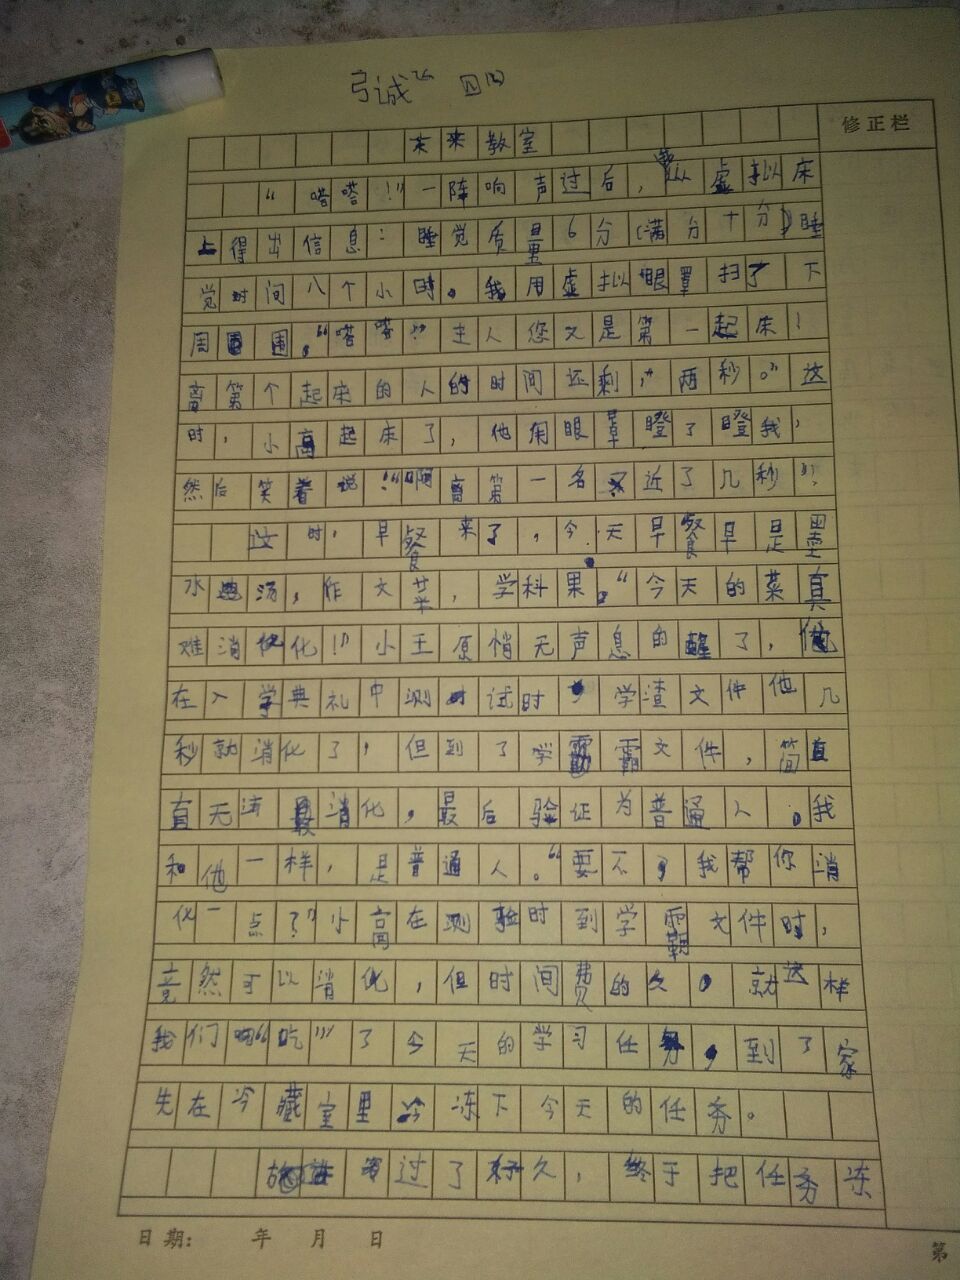 弓诚 四
修正栏
未来教室
“嗒嗒！”一阵响声过后，从虚拟床
上得出信息：睡觉质量6分（满分十分）睡
觉时间八个小时。我用虚拟眼罩扫了下
周围。“嗒嗒！”主人您又是第一起床！
离第个起床的人的时间还剩，两秒。”这
时，小高起床了，他用眼罩瞪了瞪我，
然后笑着说！“啊离第一名又近了几秒！”
这时，早餐来了，今天早餐早是墨
水汤，作文菜，学科果。“今天的菜真
难消化！”小王原悄无声息的醒了，他
在入学典礼中测试时，学渣文件他几
秒就消化了，但到了学霸文件，简直
直无法消化，最后验证为普通人。我
和他一样，是普通人。“要不，我帮你消
化一点？”小高在测验时到学霸文件时，
竟然可以消化，但时间费的久，就这样
我们“吃”了今天的学习任务，到了家
先在冷藏室里冷冻下今天的任务。
过了好久，终于把任务冻
日期： 年 月 日
第